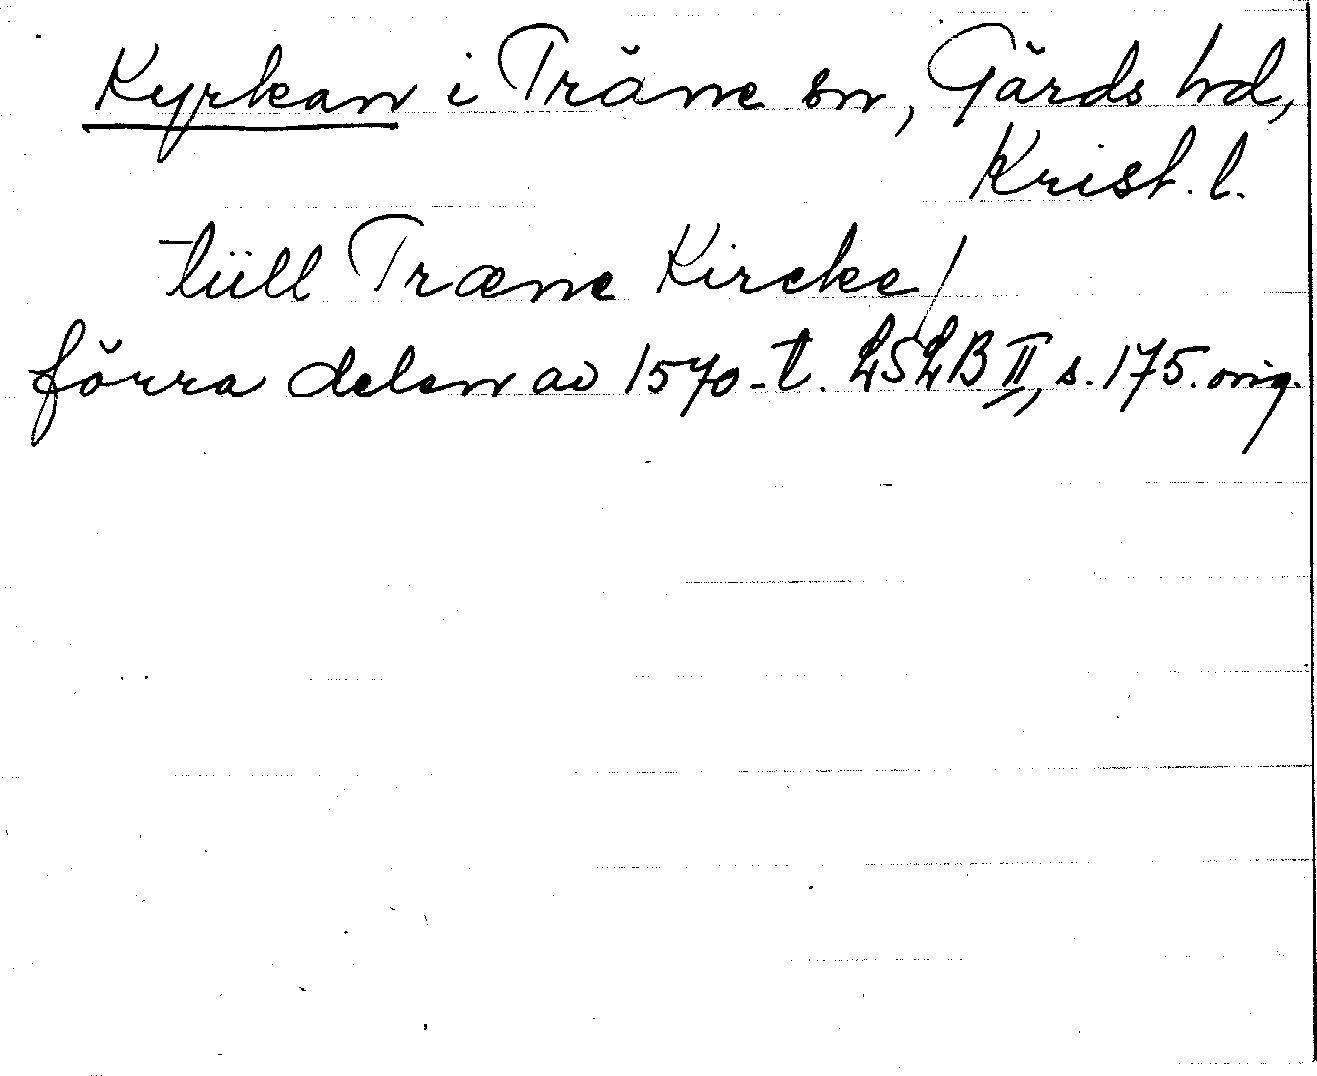 Kyrkan i Träne sn, Gärds hd,
Krist. l.
tiill Træne Kircke /
förra delen av 1570-t. LSLB II, s. 175. orig.